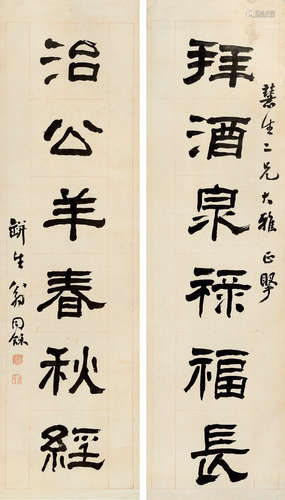 生二兄大雅正
拜酒泉祿福長
治公羊春秋經
缾生翁同龢